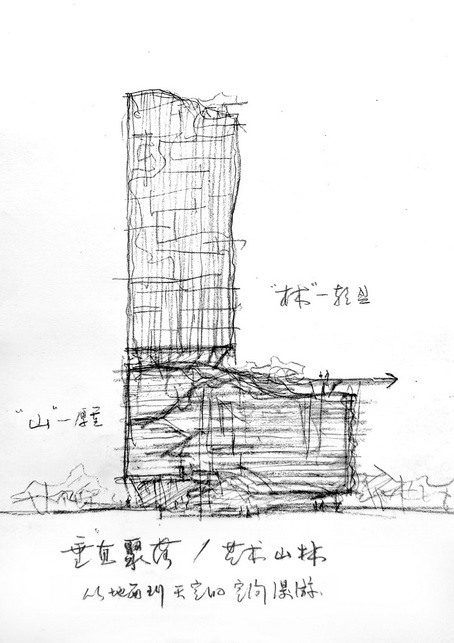 "林"—轻盈
"山"—厚重
"垂直聚落 / 艺术山林
从地面到天空的空间漫游.